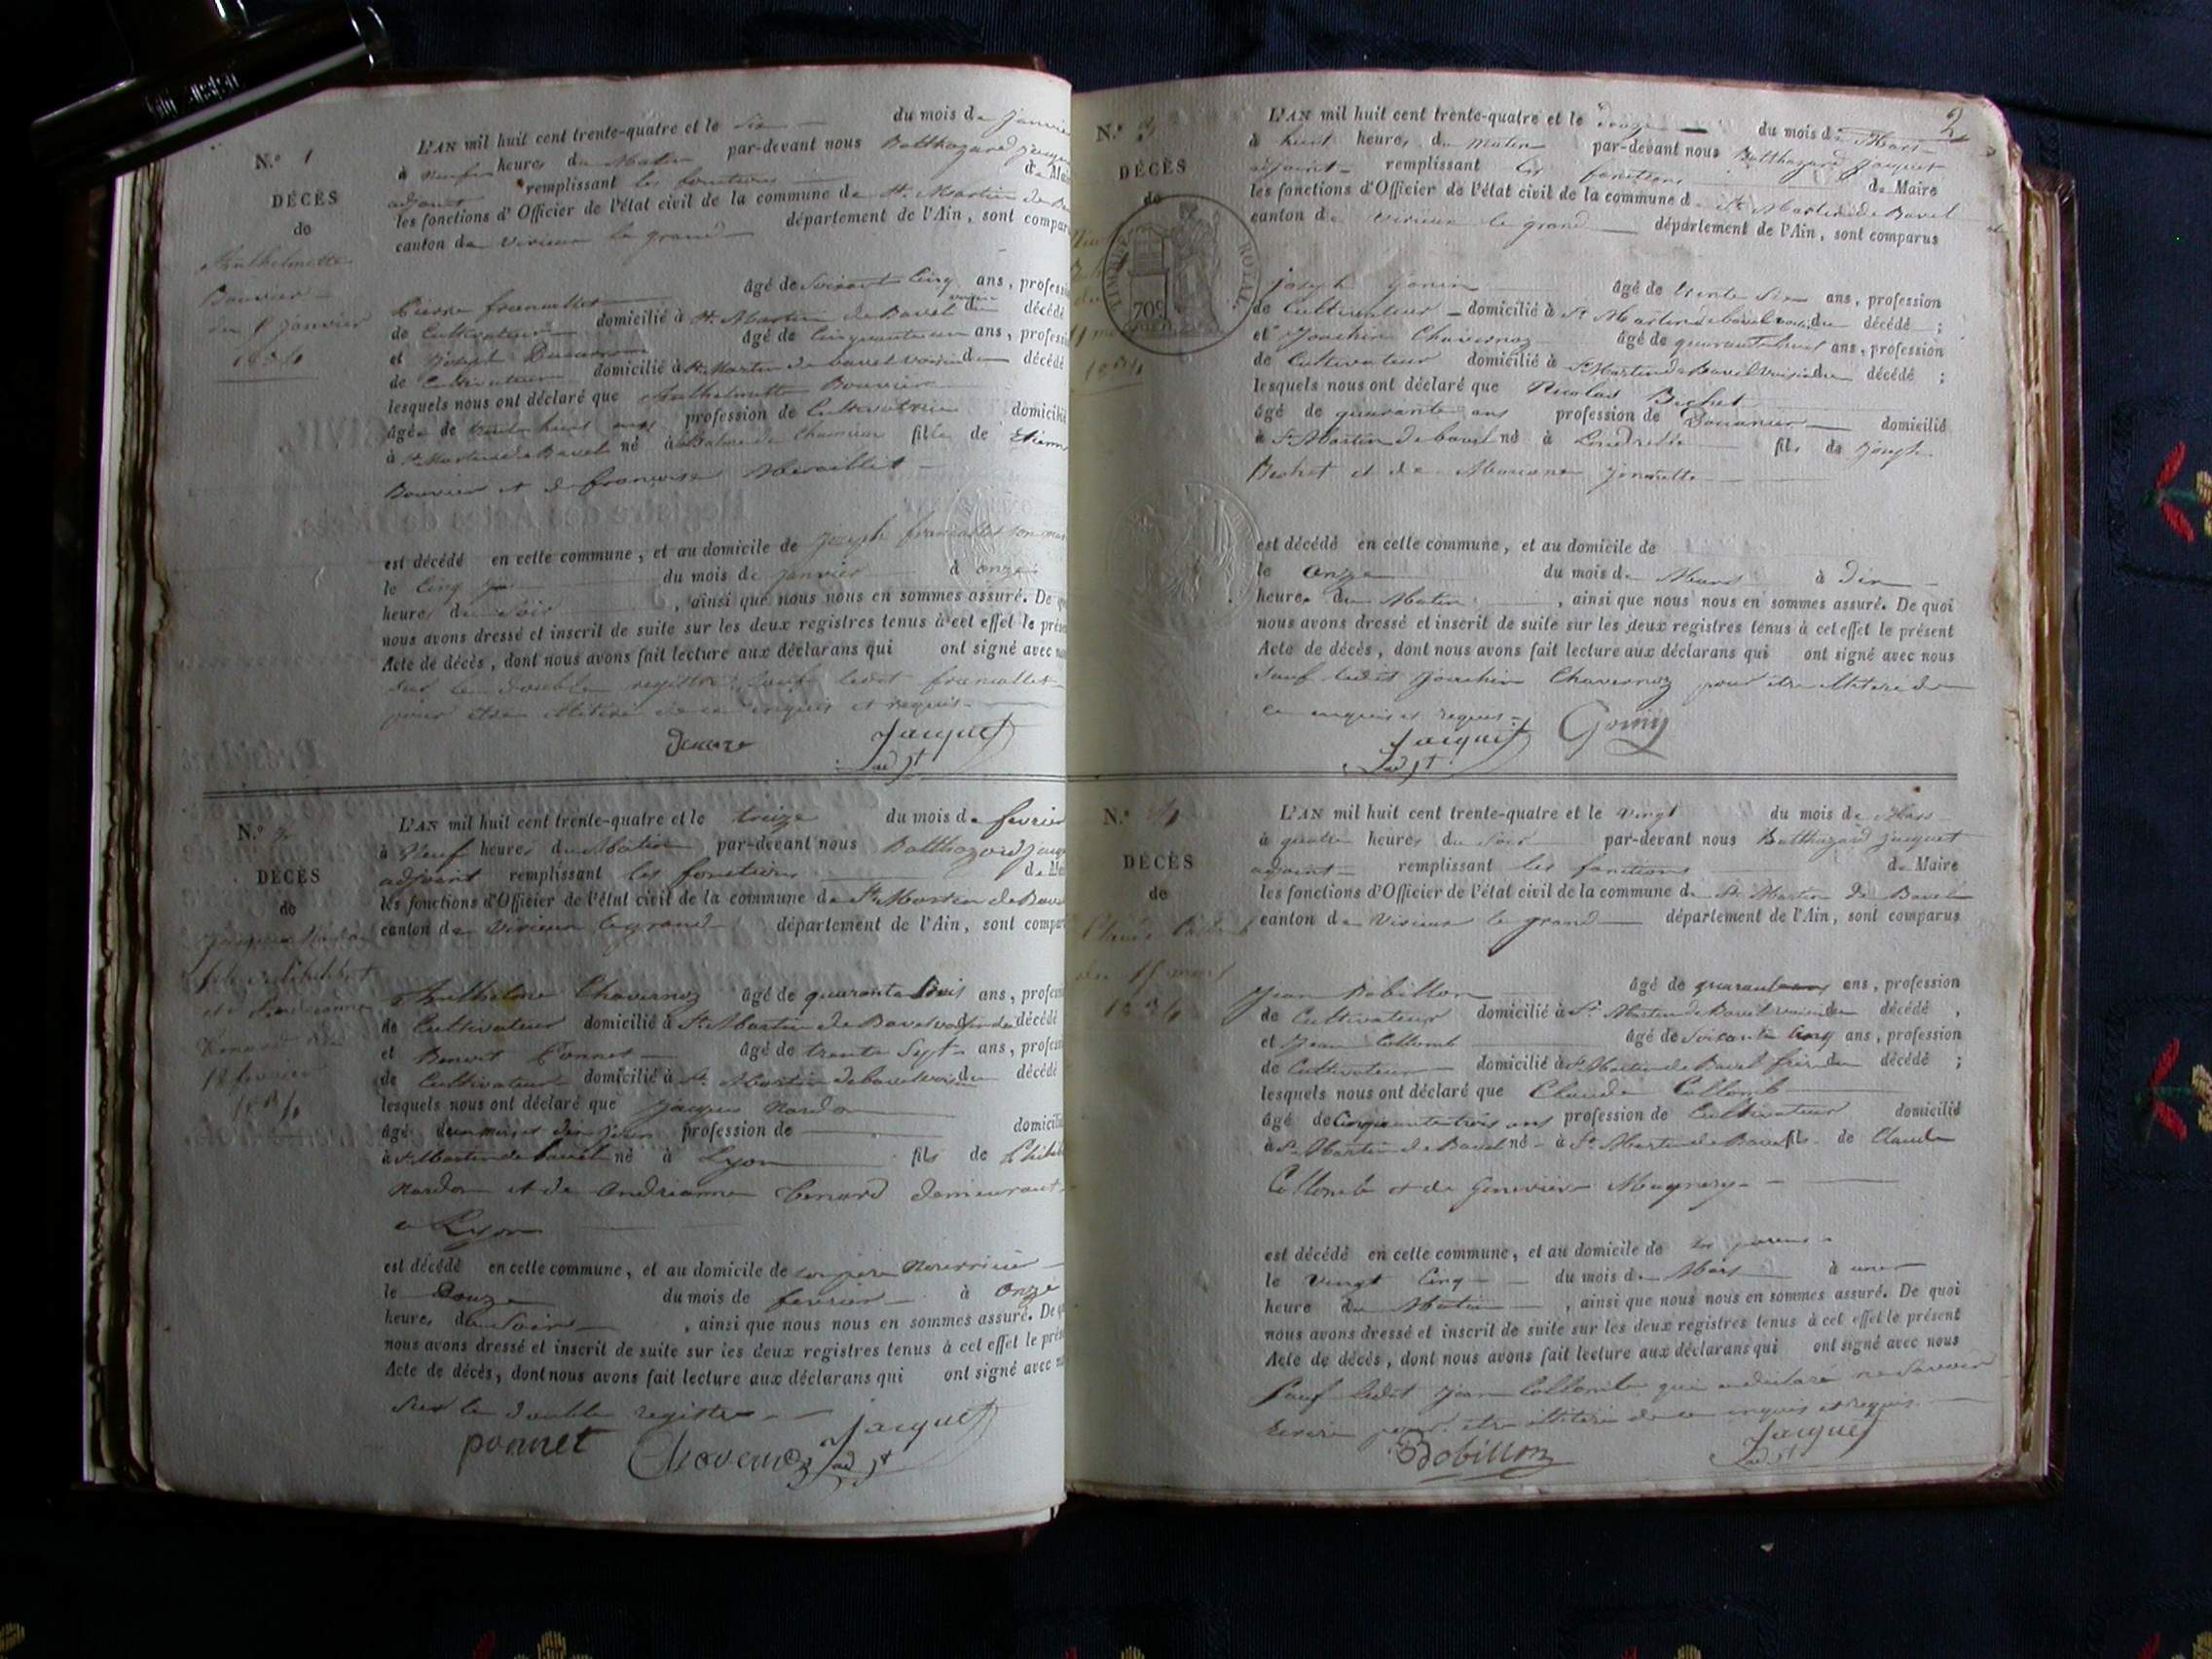 N.º 1
DÉCÈS
de
Anthelmette
Bouvier
du 5 janvier
1834
L'AN mil huit cent trente-quatre et le six du mois de janvier
à neuf heures du Matin par-devant nous Balthazard Jacquet
adjoint remplissant les fonctions de Maire
les fonctions d'Officier de l'état civil de la commune de St. Martin de Bavel
canton de Virieux le grand département de l'Ain, sont comparus
Pierre francallet âgé de Soixante Cinq ans, profession
de Cultivateur domicilié à St. Martin de Bavel voisin du décédé
et Joseph âgé de Cinquante un ans, profession
de Cultivateur domicilié à St. Martin de bavel voisin du décédé
lesquels nous ont déclaré que Anthelmette Bouvier
âgée de huit ans profession de Cultivatrice domicilié
à St. Martin de Bavel né à fille de Etienne
Bouvier et de françoise
est décédé en cette commune, et au domicile de Joseph francallet son mari
le Cinq du mois de janvier à onze
heures du Soir, ainsi que nous nous en sommes assuré. De quoi
nous avons dressé et inscrit de suite sur les deux registres tenus à cet effet le présent
Acte de décès, dont nous avons fait lecture aux déclarans qui ont signé avec nous
sur le double registre, Sauf ledit francallet
pour être illitéré de ce enquis et requis
Jacquet
adjt
N.º 2
DÉCÈS
de
Jacques Nardon
fils de Philibert
et d'Andrianne
Benard du
12 fevrier
1834
L'AN mil huit cent trente-quatre et le treize du mois de fevrier
à Neuf heures du Matin par-devant nous Balthazard Jacquet
adjoint remplissant les fonctions de Maire
les fonctions d'Officier de l'état civil de la commune de St. Martin de Bavel
canton de Virieux le grand département de l'Ain, sont comparus
Anthelme Chavernoz âgé de quarante trois ans, profession
de Cultivateur domicilié à St. Martin de Bavel voisin du décédé
et Benoit Ponnet âgé de trente Sept ans, profession
de Cultivateur domicilié à St. Martin de bavel voisin du décédé
lesquels nous ont déclaré que Jacques Nardon
âgé d'un mois et dix jours profession de domicilié
à St. Martin de bavel né à Lyon fils de Philibert
Nardon et de Andrianne Benard demeurant
a Lyon
est décédé en cette commune, et au domicile de son père Nourricier
le Douze du mois de fevrier à onze
heures du Soir, ainsi que nous nous en sommes assuré. De quoi
nous avons dressé et inscrit de suite sur les deux registres tenus à cet effet le présent
Acte de décès, dont nous avons fait lecture aux déclarans qui ont signé avec nous
Sur le double registre
ponnet Chavernoz Jacquet
adjt
2
N.º 3
DÉCÈS
de
TIMBRE ROYAL
70c
11 mars
1834
L'AN mil huit cent trente-quatre et le douze du mois de Mars
à huit heures du matin par-devant nous Balthazard Jacquet
adjoint remplissant les fonctions de Maire
les fonctions d'Officier de l'état civil de la commune de St. Martin de Bavel
canton de Virieux le grand département de l'Ain, sont comparus
Joseph Gonin âgé de trente Six ans, profession
de Cultivateur domicilié à St. Martin de bavel voisin du décédé ;
et Joachin Chavernoz âgé de quarante huit ans, profession
de Cultivateur domicilié à St. Martin de Bavel Voisin du décédé ;
lesquels nous ont déclaré que Nicolas Bechet
âgé de quarante ans profession de Douanier domicilié
à St. Martin de bavel né à fils de Joseph
Bechet et de Marianne
est décédé en cette commune, et au domicile de
le Onze du mois de Mars à Dix
heures du Matin, ainsi que nous nous en sommes assuré. De quoi
nous avons dressé et inscrit de suite sur les deux registres tenus à cet effet le présent
Acte de décès, dont nous avons fait lecture aux déclarans qui ont signé avec nous
Sauf ledit Joachin Chavernoz pour être illitéré de
ce enquis et requis
Jacquet Gonin
adjt
N.º 4
DÉCÈS
de
Claude
mars
1834
L'AN mil huit cent trente-quatre et le vingt du mois de Mars
à quatre heures du Soir par-devant nous Balthazard Jacquet
adjoint remplissant les fonctions de Maire
les fonctions d'Officier de l'état civil de la commune de St. Martin de Bavel
canton de Virieux le grand département de l'Ain, sont comparus
Jean Bobillon âgé de quarante ans, profession
de Cultivateur domicilié à St. Martin de Bavel voisin du décédé ,
et Jean Collomb âgé de Soixante Cinq ans, profession
de Cultivateur domicilié à St. Martin de Bavel frère du décédé ;
lesquels nous ont déclaré que Claude Collomb
âgé de Cinquante trois ans profession de Cultivateur domicilié
à St. Martin de Bavel né à St. Martin de Bavel fils de Claude
Collomb et de Genevieve
est décédé en cette commune, et au domicile de
le vingt Cinq du mois de Mars à une
heure du Matin, ainsi que nous nous en sommes assuré. De quoi
nous avons dressé et inscrit de suite sur les deux registres tenus à cet effet le présent
Acte de décès, dont nous avons fait lecture aux déclarans qui ont signé avec nous
Sauf ledit Jean Collomb qui a déclaré ne Savoir
Ecrire pour être illitéré de ce enquis et requis
Bobillon Jacquet
adjt